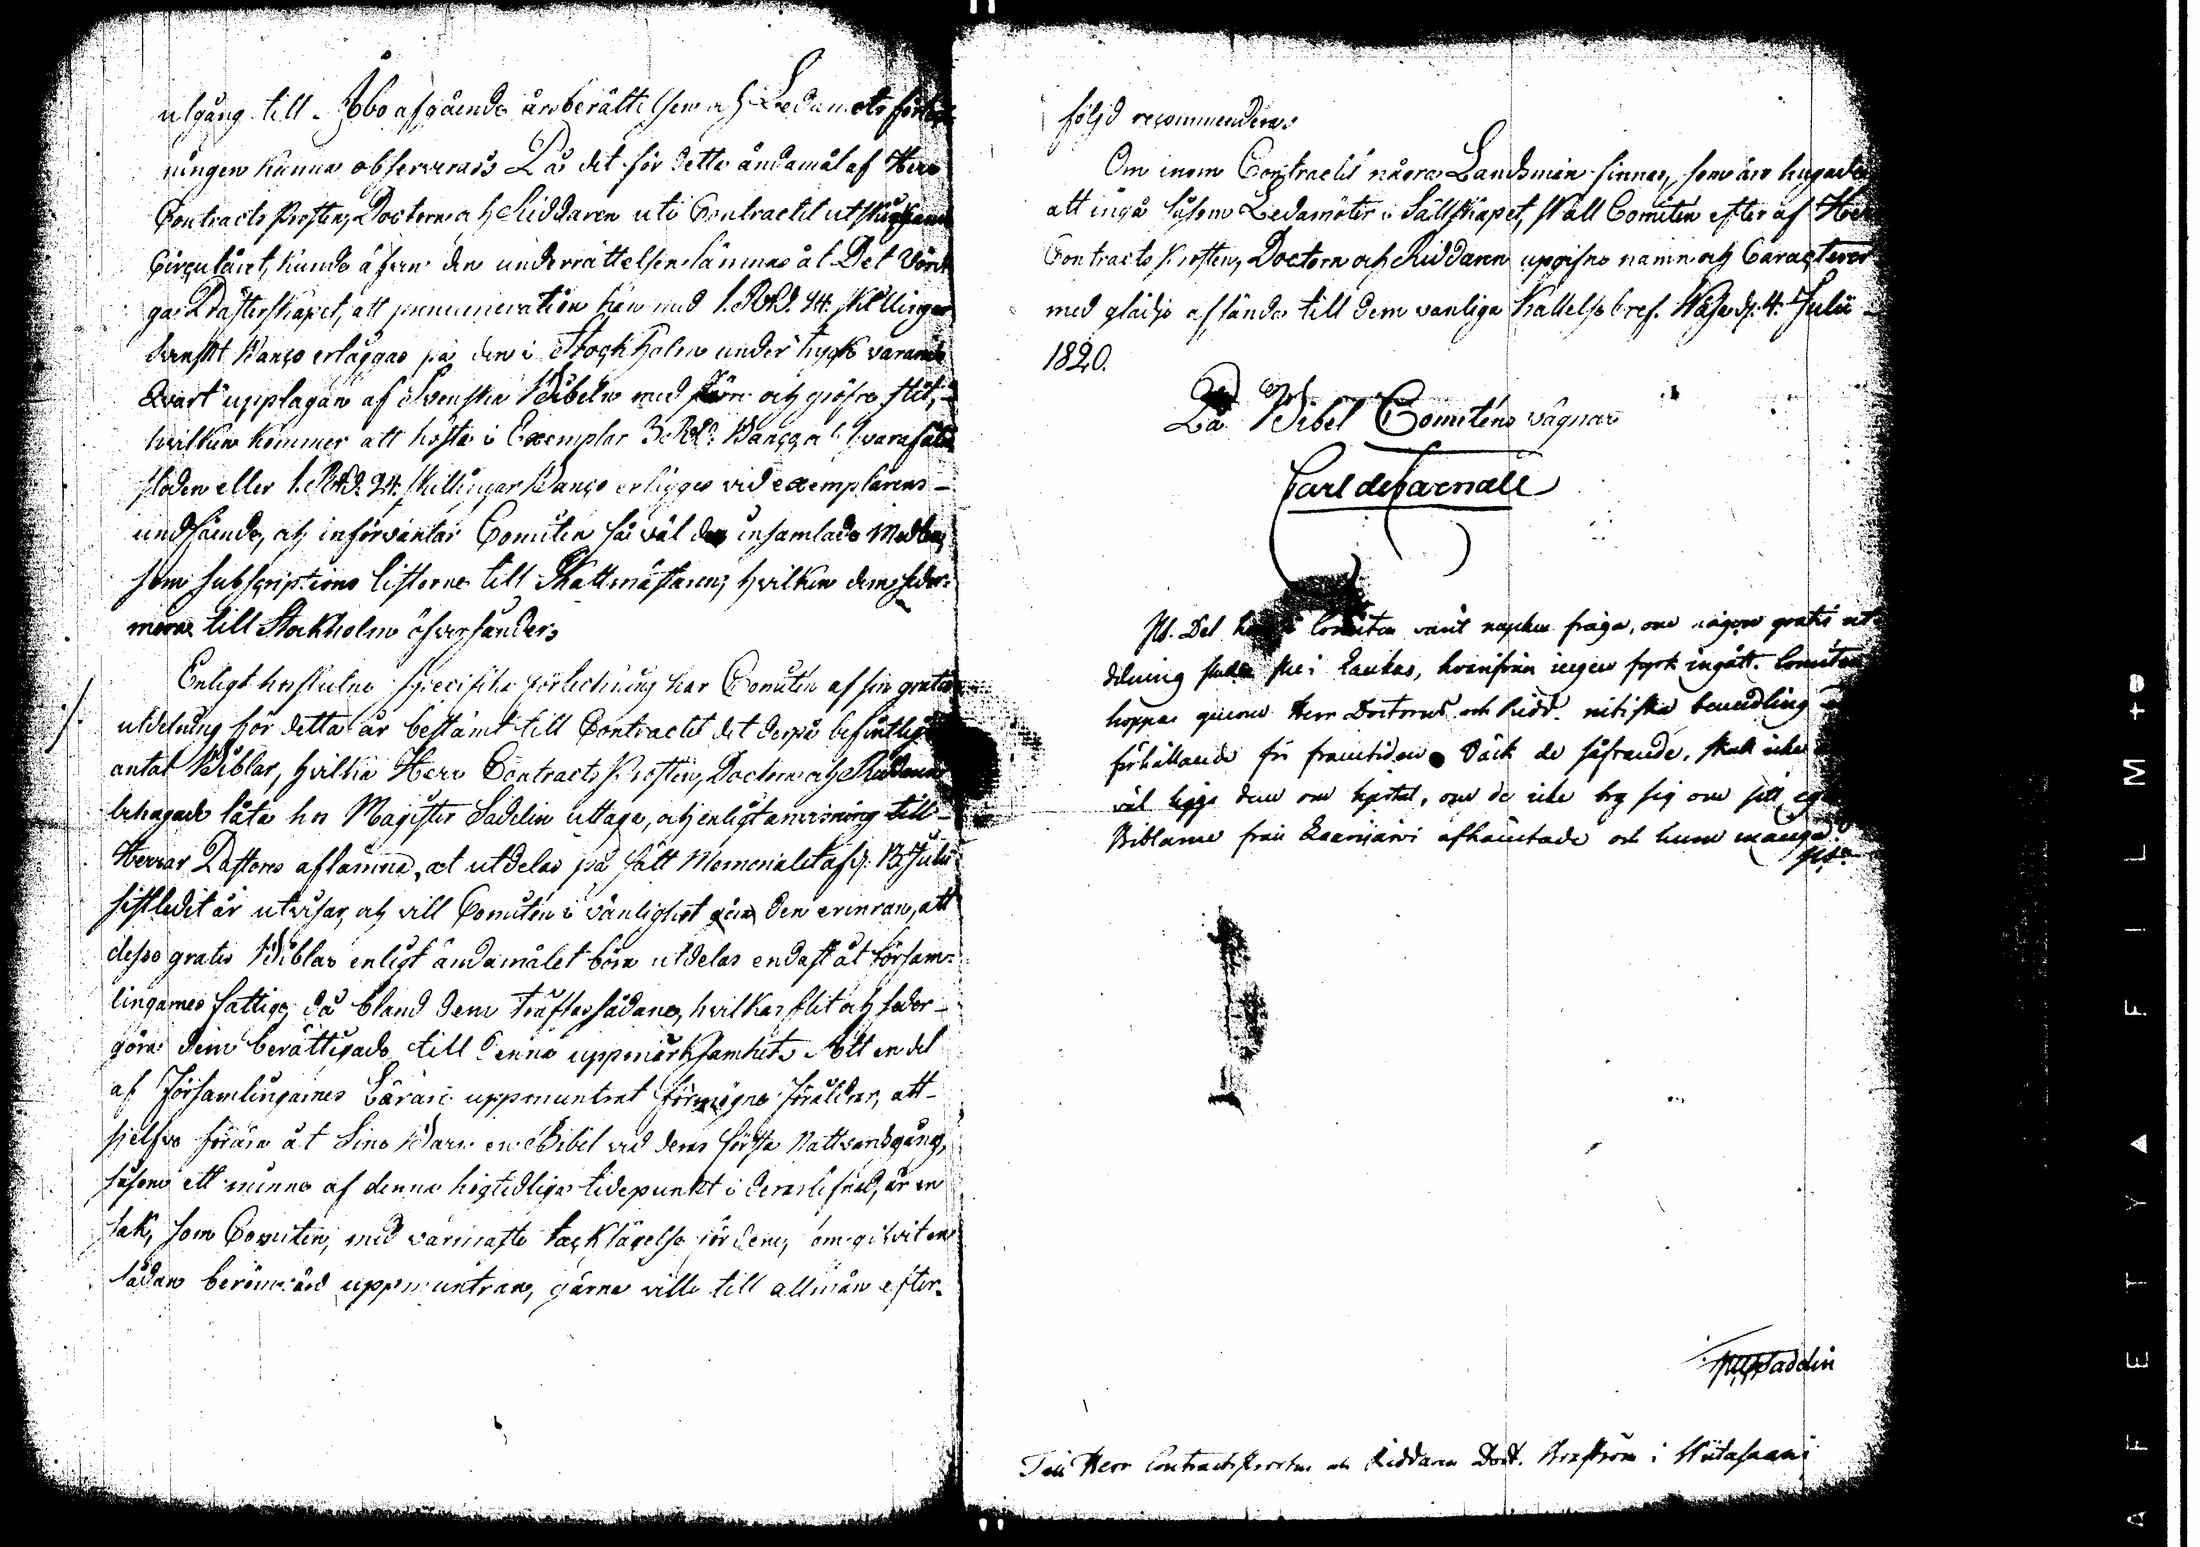 utgång till Åbo afgående årsberättelsen och Ledamots förteck
ningen kunna observeras. Då det för detta ändamål af Herr
Contracts Prosten, Doctorn och Riddaren uti Contractet utskickande
Circuläret, kunde äfven den underrättelsen lämnas åt Det Vörd
ga Prästerskapet, att prenumeration kan med 1. RD. 24 skillingar
svenskt Banco erläggas på den i Stockholm under tryck varande
Qvart upplagan af Svenska Bibeln med större och gröfre stil,
hvilken kommer att kosta i Exemplar 3 RD. Banco, och qvarstå
stoden eller 1. RD. 24. skillingar Banco erlägges vid exemplarens
undfående, och införväntar Comitén så väl de insamlade Medlen,
som subscriptions listorna till Skattmästaren, hvilken dem sedar-
mera till Stockholm öfversänder.
Enligt hosslutne specifika förteckning har Comitén af sin gratis
utdelning för detta år bestämt till Contractet det derpå befintliga
antal Biblar, hvilka Herr Contracts Prosten, Doctorn och Riddaren
behagade låta hos Magister Sadelin uttaga, och enligt anvisning till
Herrar Pastores aflämna, at utdelas på sätt Memorialet af d. 13 Julii
sistledit år utvisar, och vill Comitén i vänlighet göra den erinran, att
desse gratis Biblar enligt ändamålet böra utdelas endast åt försam-
lingarnes fattige, då bland dem träffas sådane, hvilkas flit och seder
göra dem berättigade till denna uppmärksamhet. Att en del
af Församlingarnes Lärare uppmuntrat förmögne föräldrar, att
sjelfve förära åt Sine Barn en Bibel vid deras första Nattvardsgång,
såsom ett minne af denna högtidliga tidepunkt i deras lefnad, är en
sak, som Comitén, med varmaste tacksägelse för dem, som gifvit en
sådan berömvärd uppmuntran, gärna ville till allmän efter-
följd recommendera.
Om inom Contractet några Landsmän finnas, som äro hugade
att ingå såsom Ledamöter i Sällskapet, skall Comitén efter af Herr
Contracts Prosten, Doctorn och Riddaren uppgifne namn och Caracterer
med glädje afsända till dem vanliga Kallelse bref. Wasa d. 4. Julii
1820.
På Bibel Comiténs vägnar
Carl de Carnall
Ps. Det har i Comitén varit mycken fråga, om någon gratis ut-
delning skulle ske i Laukas, hvarifrån ingen fyrk ingått. Comitén
hoppas genom Herr Doctorns och Ridd. nitiska bemedling
förhållande för framtiden. Täck de såfrande, skall icke
väl ligga dem om hjertat, om de icke bry sig om sitt eget
Biblarne från Saarijärvi afhämtade och huru många?
Till Herr Contracts Prosten och Riddaren Doct. i Wiitasaari